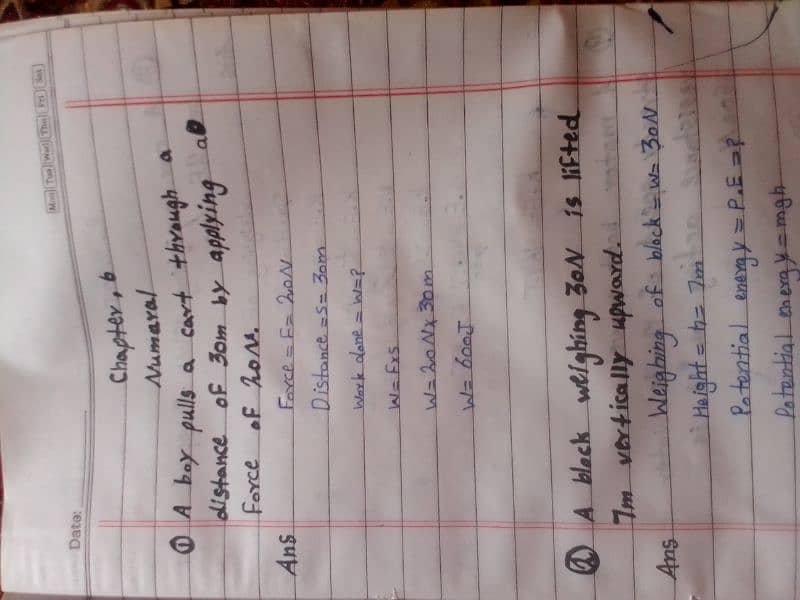 Mon Tue Wed Thu Fri Sat
Date:
Chapter, 6
Numaral
① A boy pulls a cart through a
distance of 30m by applying a
Force of 20N.
Ans Force = F = 20N
Distance = S = 30m
Work done = W = ?
W = F×S
W = 20N × 30m
W = 600J
② A block weighing 30N is lifted
7m vertically upward.
Ans Weighing of block = W = 30N
Height = h = 7m
Potential energy = P.E = ?
Potential energy = mgh